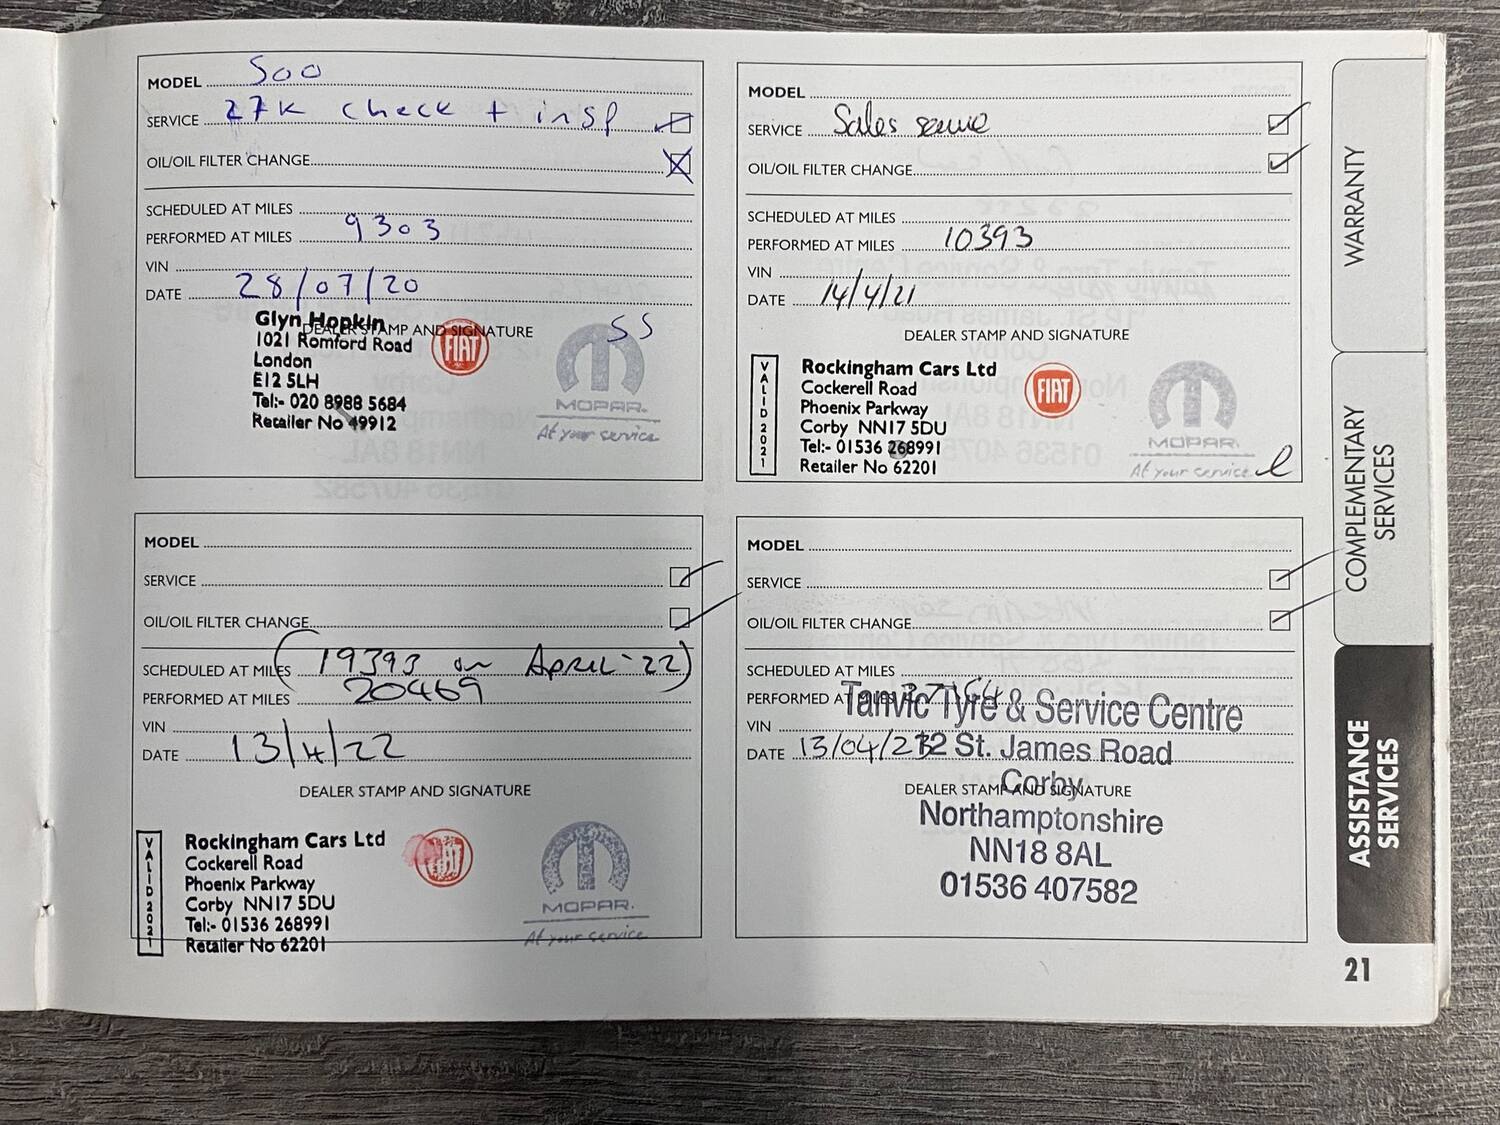 MODEL 500
SERVICE 27K check + insp
OIL/OIL FILTER CHANGE
SCHEDULED AT MILES
PERFORMED AT MILES 9303
VIN
DATE 28/07/20
DEALER STAMP AND SIGNATURE
Glyn Hopkin
1021 Romford Road
London
E12 5LH
Tel:- 020 8988 5684
Retailer No 49912
FIAT
MOPAR.
At your service
SS
MODEL
SERVICE Sales service
OIL/OIL FILTER CHANGE
SCHEDULED AT MILES
PERFORMED AT MILES 10393
VIN
DATE 14/4/21
DEALER STAMP AND SIGNATURE
VALID 2021
Rockingham Cars Ltd
Cockerell Road
Phoenix Parkway
Corby NN17 5DU
Tel:- 01536 268991
Retailer No 62201
FIAT
MOPAR.
At your service
MODEL
SERVICE
OIL/OIL FILTER CHANGE
SCHEDULED AT MILES (19393 on April-22)
PERFORMED AT MILES 20469
VIN
DATE 13/4/22
DEALER STAMP AND SIGNATURE
VALID 2021
Rockingham Cars Ltd
Cockerell Road
Phoenix Parkway
Corby NN17 5DU
Tel:- 01536 268991
Retailer No 62201
FIAT
MOPAR.
At your service
MODEL
SERVICE
OIL/OIL FILTER CHANGE
SCHEDULED AT MILES
PERFORMED AT MILES
VIN
DATE 13/04/23
DEALER STAMP AND SIGNATURE
Tanvic Tyre & Service Centre
12 St. James Road
Corby
Northamptonshire
NN18 8AL
01536 407582
WARRANTY
COMPLEMENTARY
SERVICES
ASSISTANCE
SERVICES
21